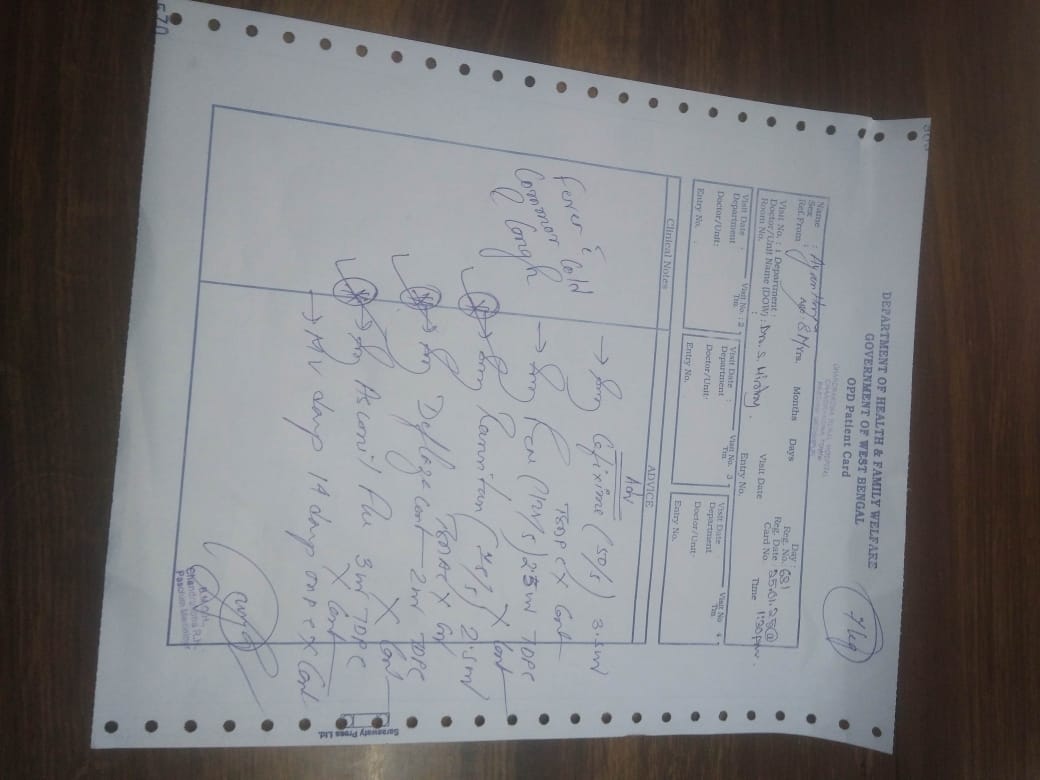 DEPARTMENT OF HEALTH & FAMILY WELFARE
GOVERNMENT OF WEST BENGAL
OPD Patient Card
7 kg
CHANDRAKONA RURAL HOSPITAL
Name : Ayan
Sex : Age : 8 M/Yrs. Months Days
Ref. From :
Day :
Reg. No. 681
Reg. Date 25.01.23@
Card No.
Visit No. : 1 Department : Visit Date Time 1:30pm.
Doctor/Unit Name (DOW) : Dr. S.
Room No. : Entry No.
Visit Date : Visit No. : 2 Visit Date : Visit No. 3 Visit Date Visit No 4
Department Tm Department : Tm Department : Tm
Doctor/Unit: Doctor/Unit: Doctor/Unit:
Entry No. : Entry No. Entry No.
Clinical Notes ADVICE
Fever c̄
Common Cold
& Cough
Adv
→ Syp Cefixime (50/5) 3.5ml
TSDPC X Cont
→ Syp PCM (125/5) 2.5ml TDPC
X Cont
→ Syp (75/5) 2.5ml
BDAC X
→ Syp 2ml TDPC
X Cont
→ Syp Ascoril Flu 3ml TDPC
X Cont
→ MV drop 14 drop once X Cont
B.M.O.H.
Chandrakona R.H.
Paschim Medinipur
Saraswaty Press Ltd.